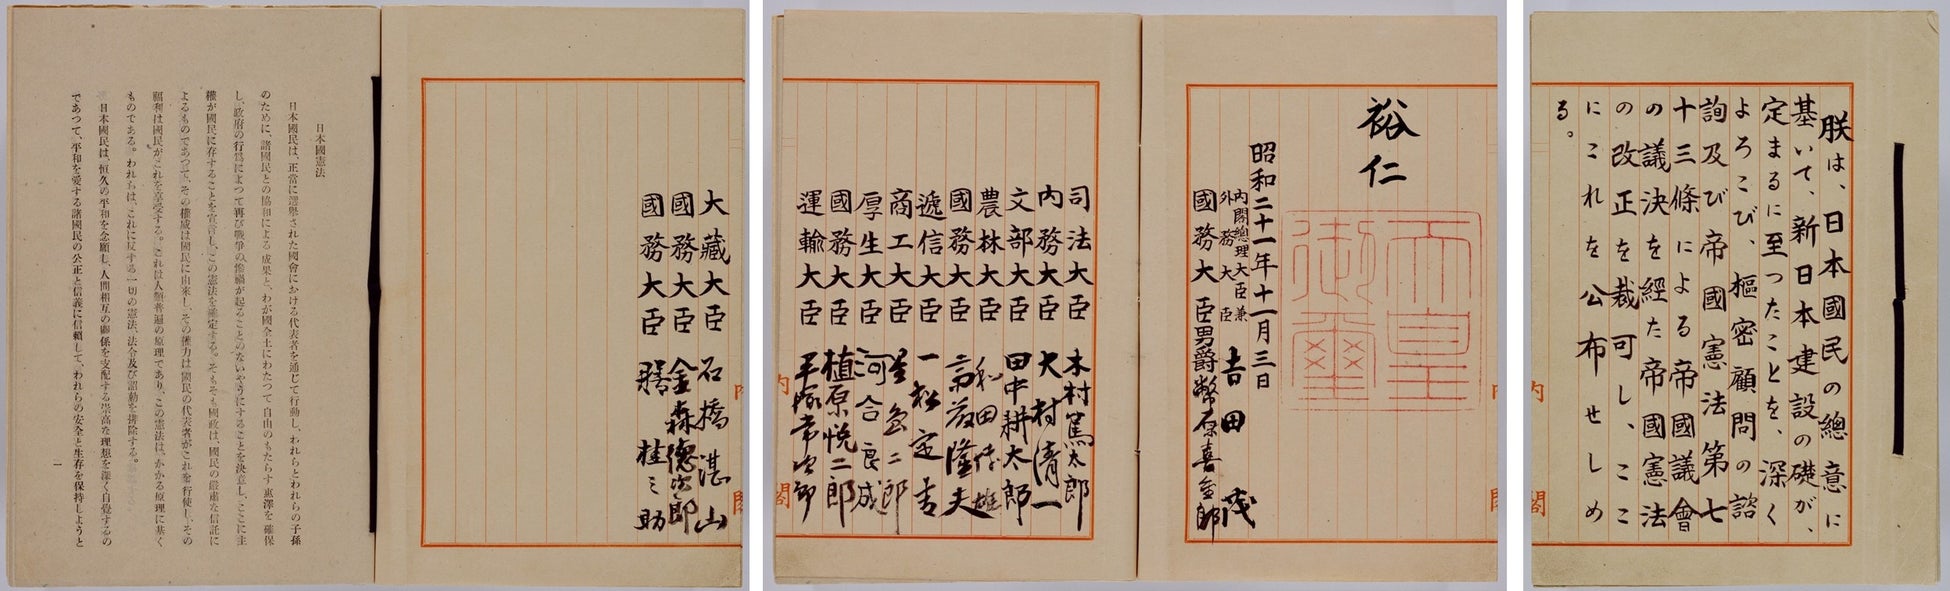 朕は、日本國民の總意に
基いて、新日本建設の礎が、
定まるに至つたことを、深く
よろこび、樞密顧問の諮
詢及び帝國憲法第七
十三條による帝國議會
の議決を經た帝國憲法
の改正を裁可し、ここ
にこれを公布せしめ
る。
裕仁
天皇御璽
昭和二十一年十一月三日
內閣總理大臣兼
外務大臣 吉田茂
國務大臣男爵幣原喜重郎
司法大臣 木村篤太郎
內務大臣 大村清一
文部大臣 田中耕太郎
農林大臣 和田博雄
國務大臣 斎藤隆夫
遞信大臣 一松定吉
商工大臣 星島二郎
厚生大臣 河合良成
國務大臣 植原悅二郎
運輸大臣 平塚常次郎
大藏大臣 石橋湛山
國務大臣 金森德次郎
國務大臣 膳桂之助
內閣
內閣
日本國憲法
日本國民は、正當に選擧された國會における代表者を通じて行動し、われらとわれらの子孫
のために、諸國民との協和による成果と、わが國全土にわたつて自由のもたらす惠澤を確保
し、政府の行爲によつて再び戰爭の慘禍が起ることのないやうにすることを決意し、ここに主
權が國民に存することを宣言し、この憲法を確定する。そもそも國政は、國民の嚴肅な信託に
よるものであつて、その權威は國民に由來し、その權力は國民の代表者がこれを行使し、その
福利は國民がこれを享受する。これは人類普遍の原理であり、この憲法は、かかる原理に基く
ものである。われらは、これに反する一切の憲法、法令及び詔勅を排除する。
日本國民は、恒久の平和を念願し、人間相互の關係を支配する崇高な理想を深く自覺するの
であつて、平和を愛する諸國民の公正と信義に信賴して、われらの安全と生存を保持しようと
一